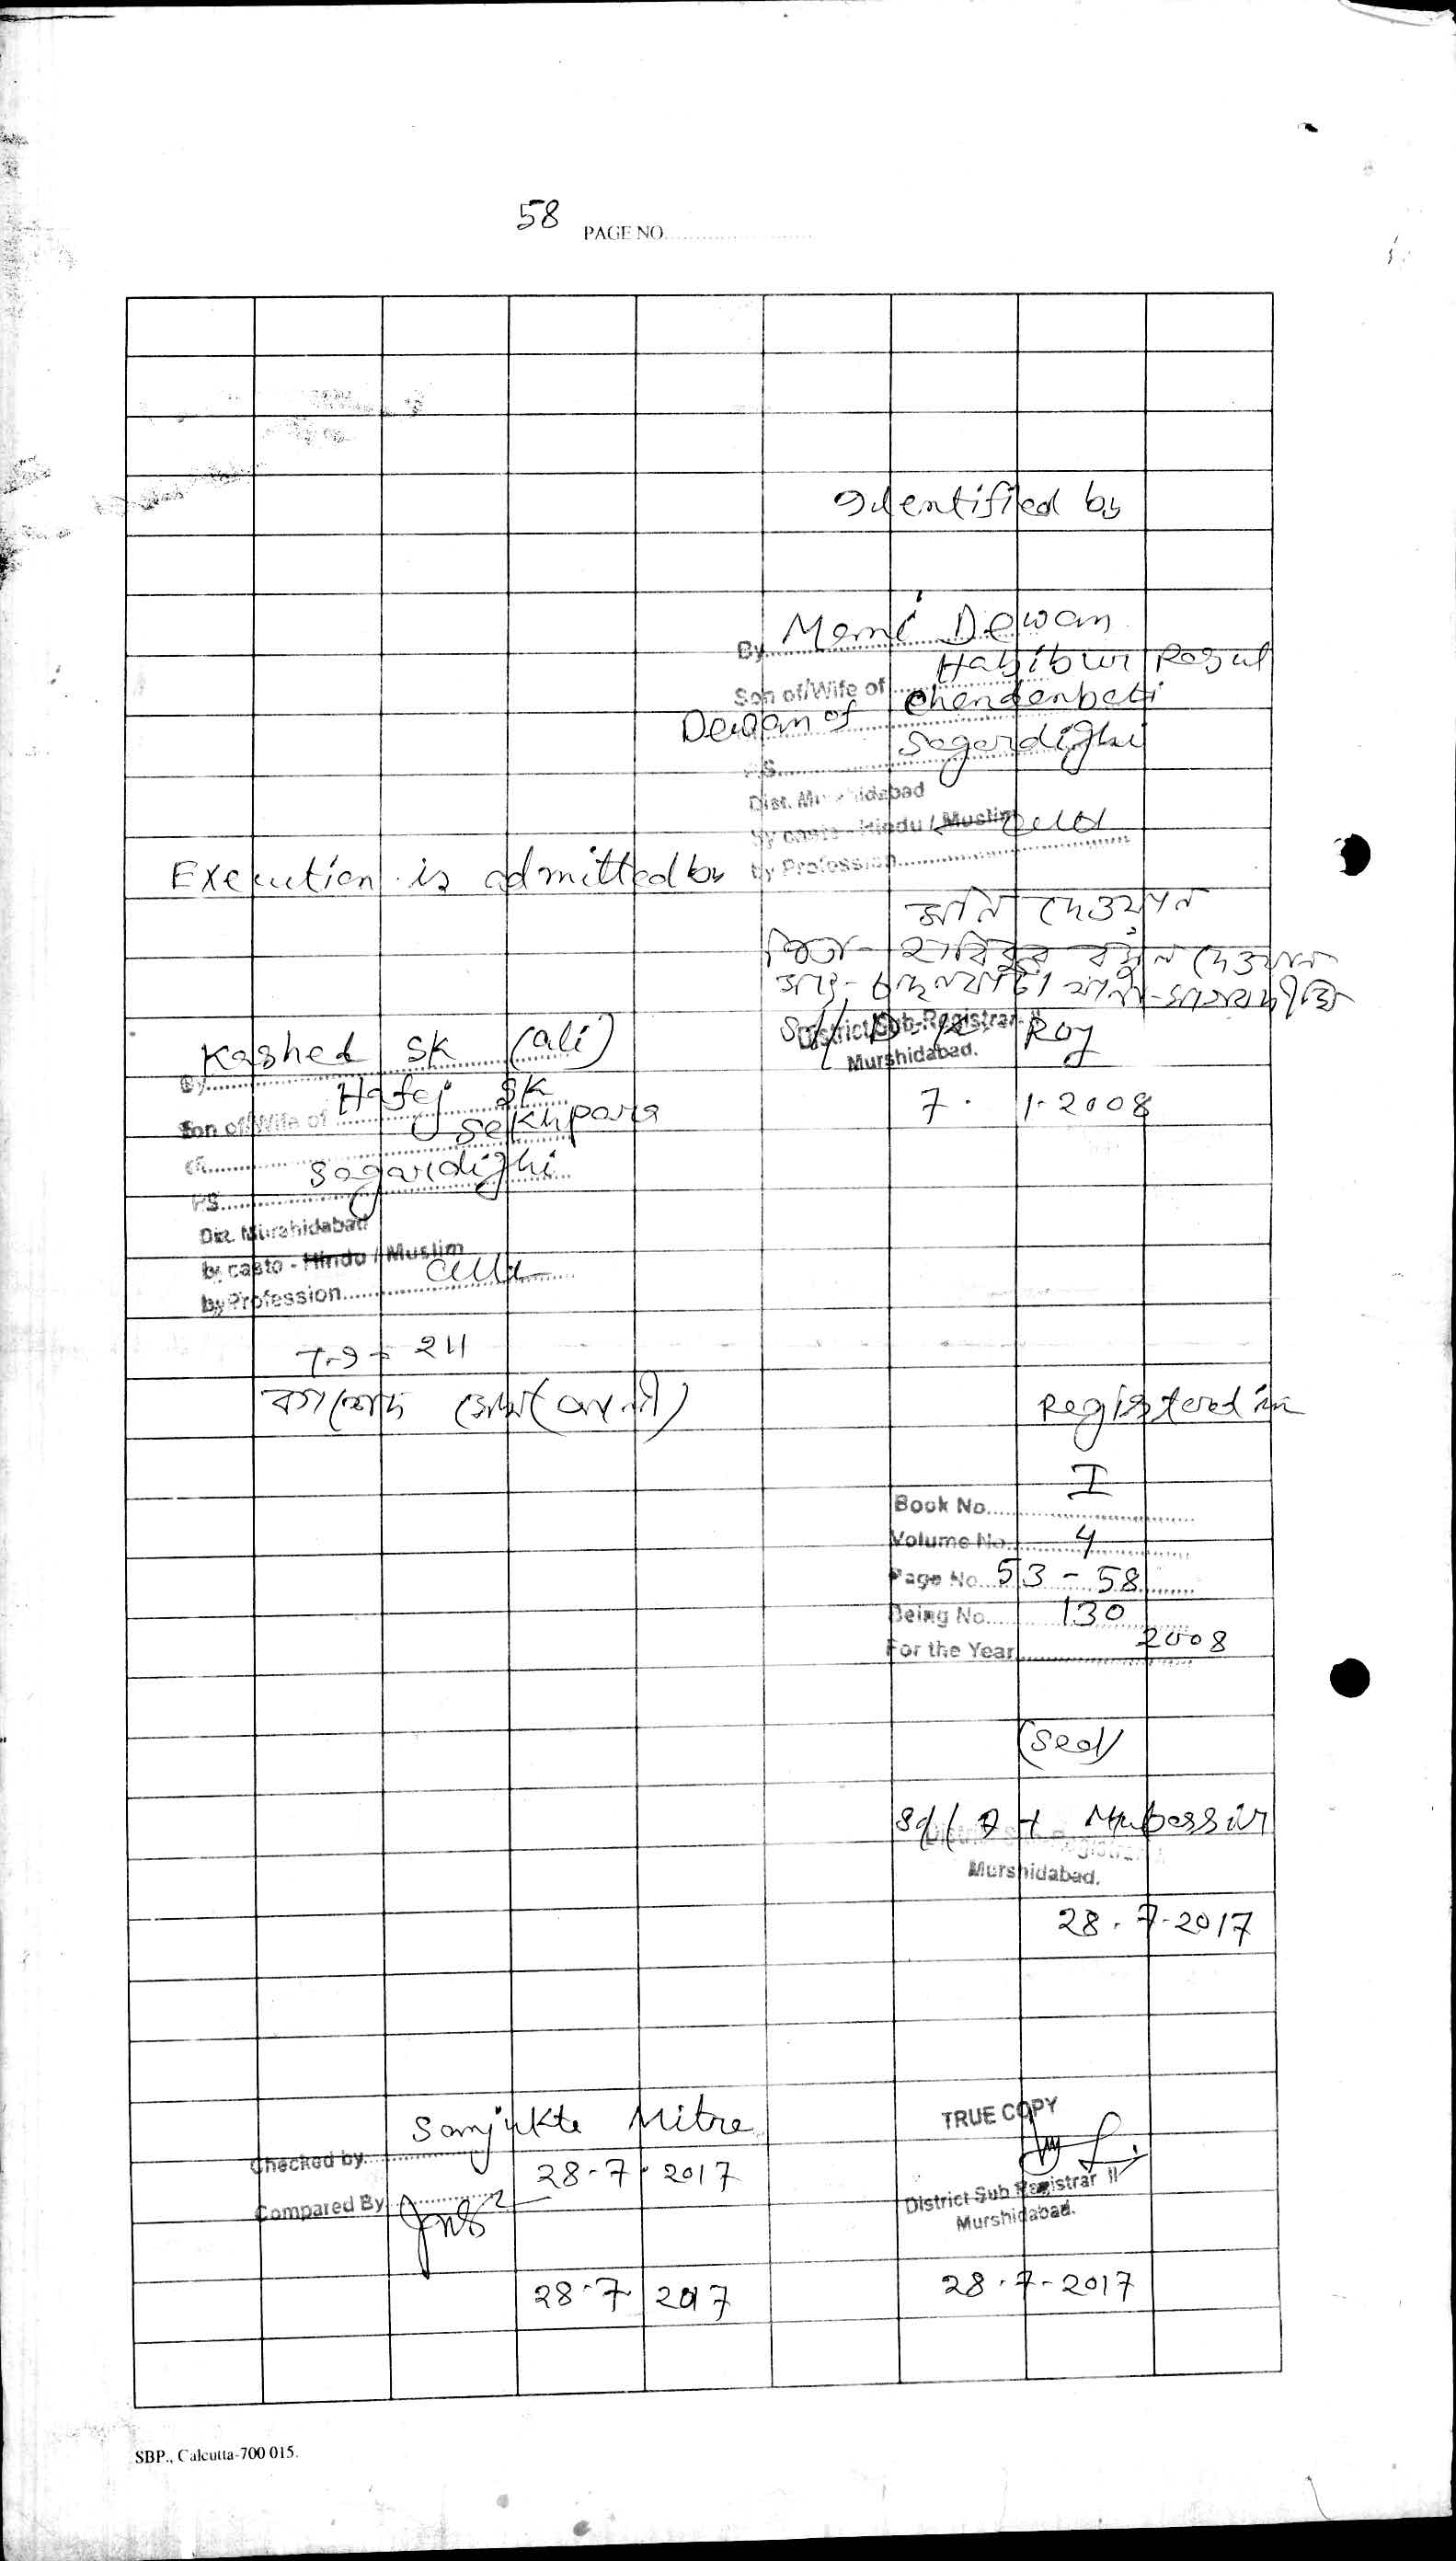 58 PAGE NO.
Identified by
By Momi Dewan
Son of/Wife of Habibur Rasul
Dewan of Chandanbati
P.S. Sagardighi
Dist. Murshidabad
By caste - Hindu / Muslim
by Profession
Execution is admitted by
মনি দেওয়ান
পিতা- হাবিবুর রসুল দেওয়ান
সাং- চন্দনবাটী থানা-সাগরদীঘি
Sd/ D. K. Roy
District Sub-Registrar-II
Murshidabad.
7. 1.2008
By Kashed SK (ali)
Son of/Wife of Hafej SK
of Sekhpara
P.S. Sagardighi
Dist. Murshidabad
by caste - Hindu / Muslim
by Profession cult
কাশেদ সেখ (আলী)
Registered in
Book No. I
Volume No. 4
Page No. 53 - 58
Being No. 130
For the Year 2008
(Seal)
Sd/ Mubassir
District Sub Registrar
Murshidabad.
28.7-2017
Checked by Sanjukta Mitra
28-7-2017
Compared By
28-7 2017
TRUE COPY
District Sub Registrar II
Murshidabad.
28.7-2017
SBP., Calcutta-700 015.